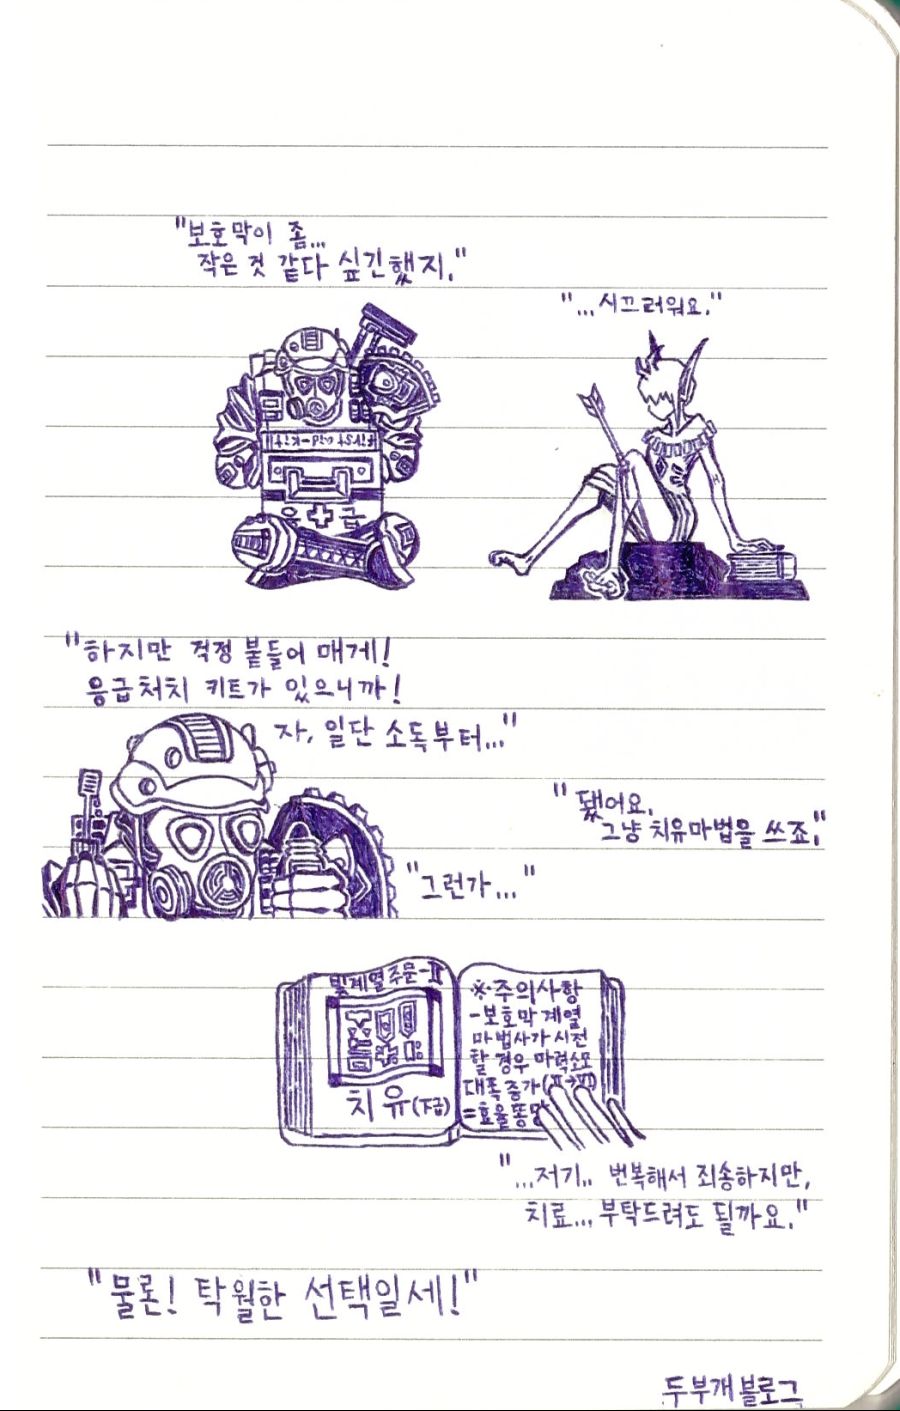 "보호막이 좀...
작은 것 같다 싶긴했지."
"...시끄러워요."
first aid-kit
응 급
"하지만 걱정 붙들어 매게!
응급처치 키트가 있으니까!
자, 일단 소독부터..."
"됐어요.
그냥 치유마법을 쓰죠."
"그런가..."
빛계열주문-Ⅱ
치유(下급)
※주의사항
-보호막계열
마법사가 시전
할 경우 마력소모
대폭증가(Ⅱ→Ⅵ)
=효율똥망
"...저기.. 번복해서 죄송하지만,
치료... 부탁드려도 될까요."
"물론! 탁월한 선택일세!"
두부개블로그